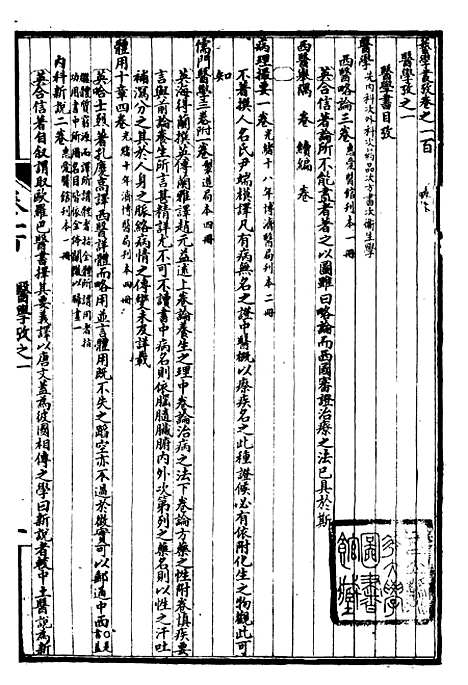 藝學書攷卷之一百
醫學攷之一
醫學書目攷
醫學 先內科次外科次药品次方書次衛生學
西醫略論三卷 惠愛醫館刊本一冊
英合信著論所不能盡者著之以圖雖曰略論而西國審證治療之法已具於斯
西醫舉隅 卷續編 卷
病理撮要一卷 光緒十八年博濟醫局刊本二冊
不著撰人名氏尹端模譯凡有病無名之證中醫概以瘵疾名之此種證候必有依附化生之物觀此可
知
儒門醫學三卷附一卷 製造局本四冊
英海得蘭撰英傅蘭雅譯趙元益述上卷論養生之理中卷論治病之法下卷論方藥之性附卷慎疾要
言與前論養生所言甚精詳尤不可不讀書中病名則依腦髓臟腑內外次第列之藥名則以性之汗吐
補瀉分之其於人身之脈絡病情之傳變未及詳載
體用十章四卷 光緒十年博濟醫局刊本四冊
英哈士烈著孔慶高譯西醫詳體而略用並言體用既不失之蹈空亦不過於徵實可以郵通中西
內科新說二卷 惠愛醫館刊本一冊
英合信著自叙謂取歐羅巴醫書擇其要義譯以唐文蓋為彼國相傳之學曰新說者較中土醫說為新
醫學攷之一
大學圖書館藏